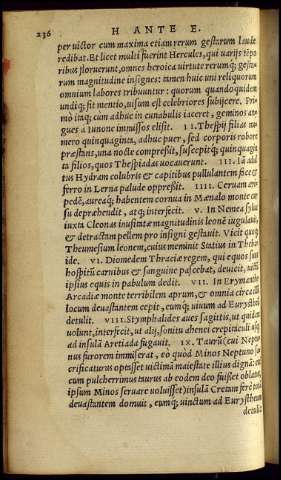 236 H ANTE E.
per uictor cum maxima etiam rerum gestarum laude
redibat. Et licet multi fuerint Hercules, qui uarijs tẽpo
ribus floruerunt, omnes heroica uirtute rerumq; gesta
rum magnitudine insignes: tamen huic uni reliquorum
omnium labores tribuuntur: quorum quando quidem
undiq; fit mentio, uisum est celebriores subijcere. Pri-
mò inq; cum adhuc in cunabulis iaceret, geminos an-
gues à Iunone immissos elisit. II. Thespij filias nu
mero quinquaginta, adhuc puer, sed corporis robore
præstans, una nocte compressit, suscepitq; quinquagin
ta filios, quos Thespiadas uocauerunt. III.
tus Hydram colubris & capitibus pullulantem face &
ferro in Lerna palude oppressit. IIII. Ceruam æri
pedẽ, aureaq; habentem cornua in Mænalo monte cur
su depræhendit, atq; interfecit. V. In Nemea sylua
iuxta Cleonas inusitatæ magnitudinis leonẽ iugulauit,
& detractam pellem pro insigni gestauit. Vicit quoq;
Theumesium leonem, cuius meminit Statius in Theba
ide. VI. Diomedem Thraciæ regem, qui equos suos
hospitũ carnibus & sanguine pascebat, deuicit,
ipsius equis in pabulum dedit. VII. In Erymantho
Arcadiæ monte terribilem aprum, & omnia circa
locum deuastantem cepit, eumq; uiuum ad Eurystheũ
detulit. VIII. Stymphalides aues sagittis, ut quidã
uolunt, interfecit, ut alij, sonitu ahenei crepitaculi
ad insulã Aretiada fugauit. IX. Taurũ (cui Nep
nus furorem immiserat, eo quòd Minos Neptuno
crificaturus optasset uictimã maiestate illius dignã: et
cum pulcherrimus taurus ab eodem deo fuisset oblatus,
ipsum Minos seruare uoluisset) insulã Cretam
deuastantem domuit, eumq; uinctum ad Eurystheum
detulit